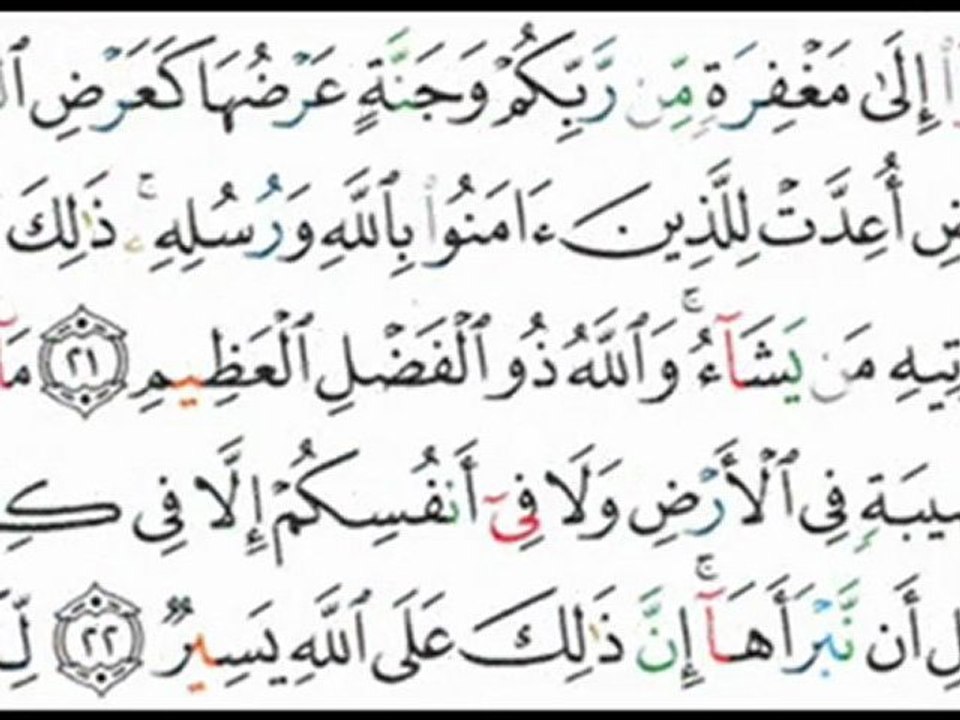 إِلَىٰ مَغْفِرَةٍ مِّن رَّبِّكُمْ وَجَنَّةٍ عَرْضُهَا كَعَرْضِ
أُعِدَّتْ لِلَّذِينَ ءَامَنُوا۟ بِٱللَّهِ وَرُسُلِهِۦ ۚ ذَٰلِكَ
مَن يَشَآءُ ۚ وَٱللَّهُ ذُو ٱلْفَضْلِ ٱلْعَظِيمِ ٢١ مَآ
فِى ٱلْأَرْضِ وَلَا فِىٓ أَنفُسِكُمْ إِلَّا فِى
أَن نَّبْرَأَهَآ ۚ إِنَّ ذَٰلِكَ عَلَى ٱللَّهِ يَسِيرٌ ٢٢